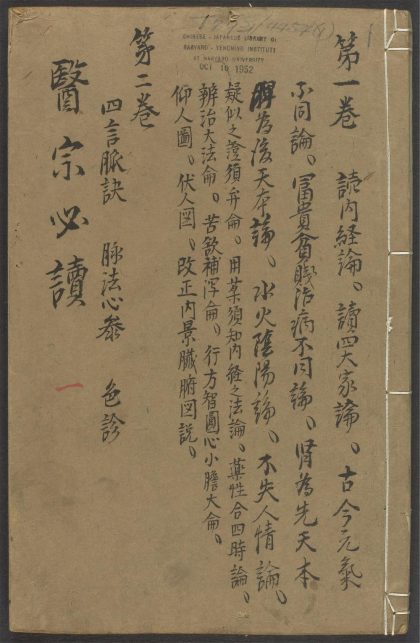 CHINESE - JAPANESE LIBRARY OF
HARVARD - YENCHING INSTITUTE
AT HARVARD UNIVERSITY
OCT 16 1952
第一卷 讀內経論、讀四大家論、古今元氣
不同論、冨貴貧賤治病不同論、肾為先天本
脾為後天本論、水火陰陽論、不失人情論、
疑似之證須弁侖、用薬須知內経之法論、藥性合四時論、
辨治大法侖、苦欲補泻侖、行方智圓心小膽大侖、
仰人圖、伏人図、改正內景臟腑図説、
第二卷
四言脈訣 脉法心参 色診
醫宗必讀 一